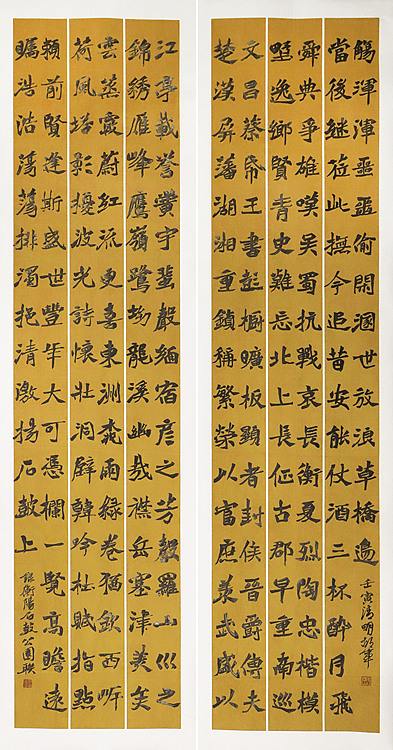 楚漢屏藩湖湘重鎮稱繁榮以富庶羨武威以
文昌蔡帋王書彭櫥曠板顯者封侯晉爵傳夫
野逸鄉賢青史難忘北上長征古郡早重南巡
舜典爭雄嘆吳蜀抗戰哀長衡夏烈陶忠楷模
當後繼蒞此撫今追昔安能仗酒三杯醉月飛
觴渾渾噩噩偷閑溷世放浪草橋邊
壬寅清明
江亭載譽黌宇蜚聲緬宿彥之芳馨羅山巛之
錦綉雁峰鷹嶺鷺坳龍溪幽哉襟岳塞津美矣
雲蒸霞蔚紅流更喜東洲桃雨綠卷猶欽西岸
荷風塔影擾波光詩懷壯洞壁韓吟杜賦指點
賴前賢逢斯盛世豐年大可憑欄一覽高瞻遠
矚浩浩蕩蕩排濁挹清激揚石鼓上
錄衡陽石鼓公園聯